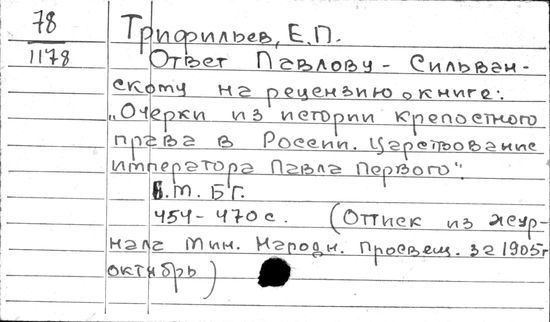 78
1178
Трифильев, Е.П.
Ответ Павлову-Сильван-
скому на рецензию о книге:
„Очерки из истории крепостного
права в России. Царствование
императора Павла Первого".
Б.м. Б.Г.
454-470 с. (Оттиск из жур-
нала Мин. Народн. просвещ. за 1905г
октябрь)